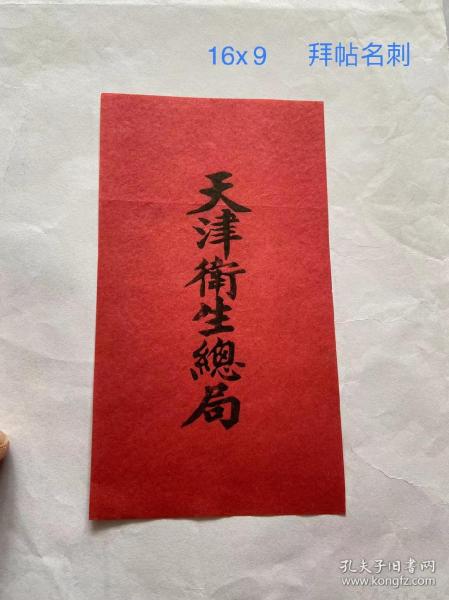 16x9 拜帖名刺
天津衛生總局
孔夫子旧书网
www.kongfz.com